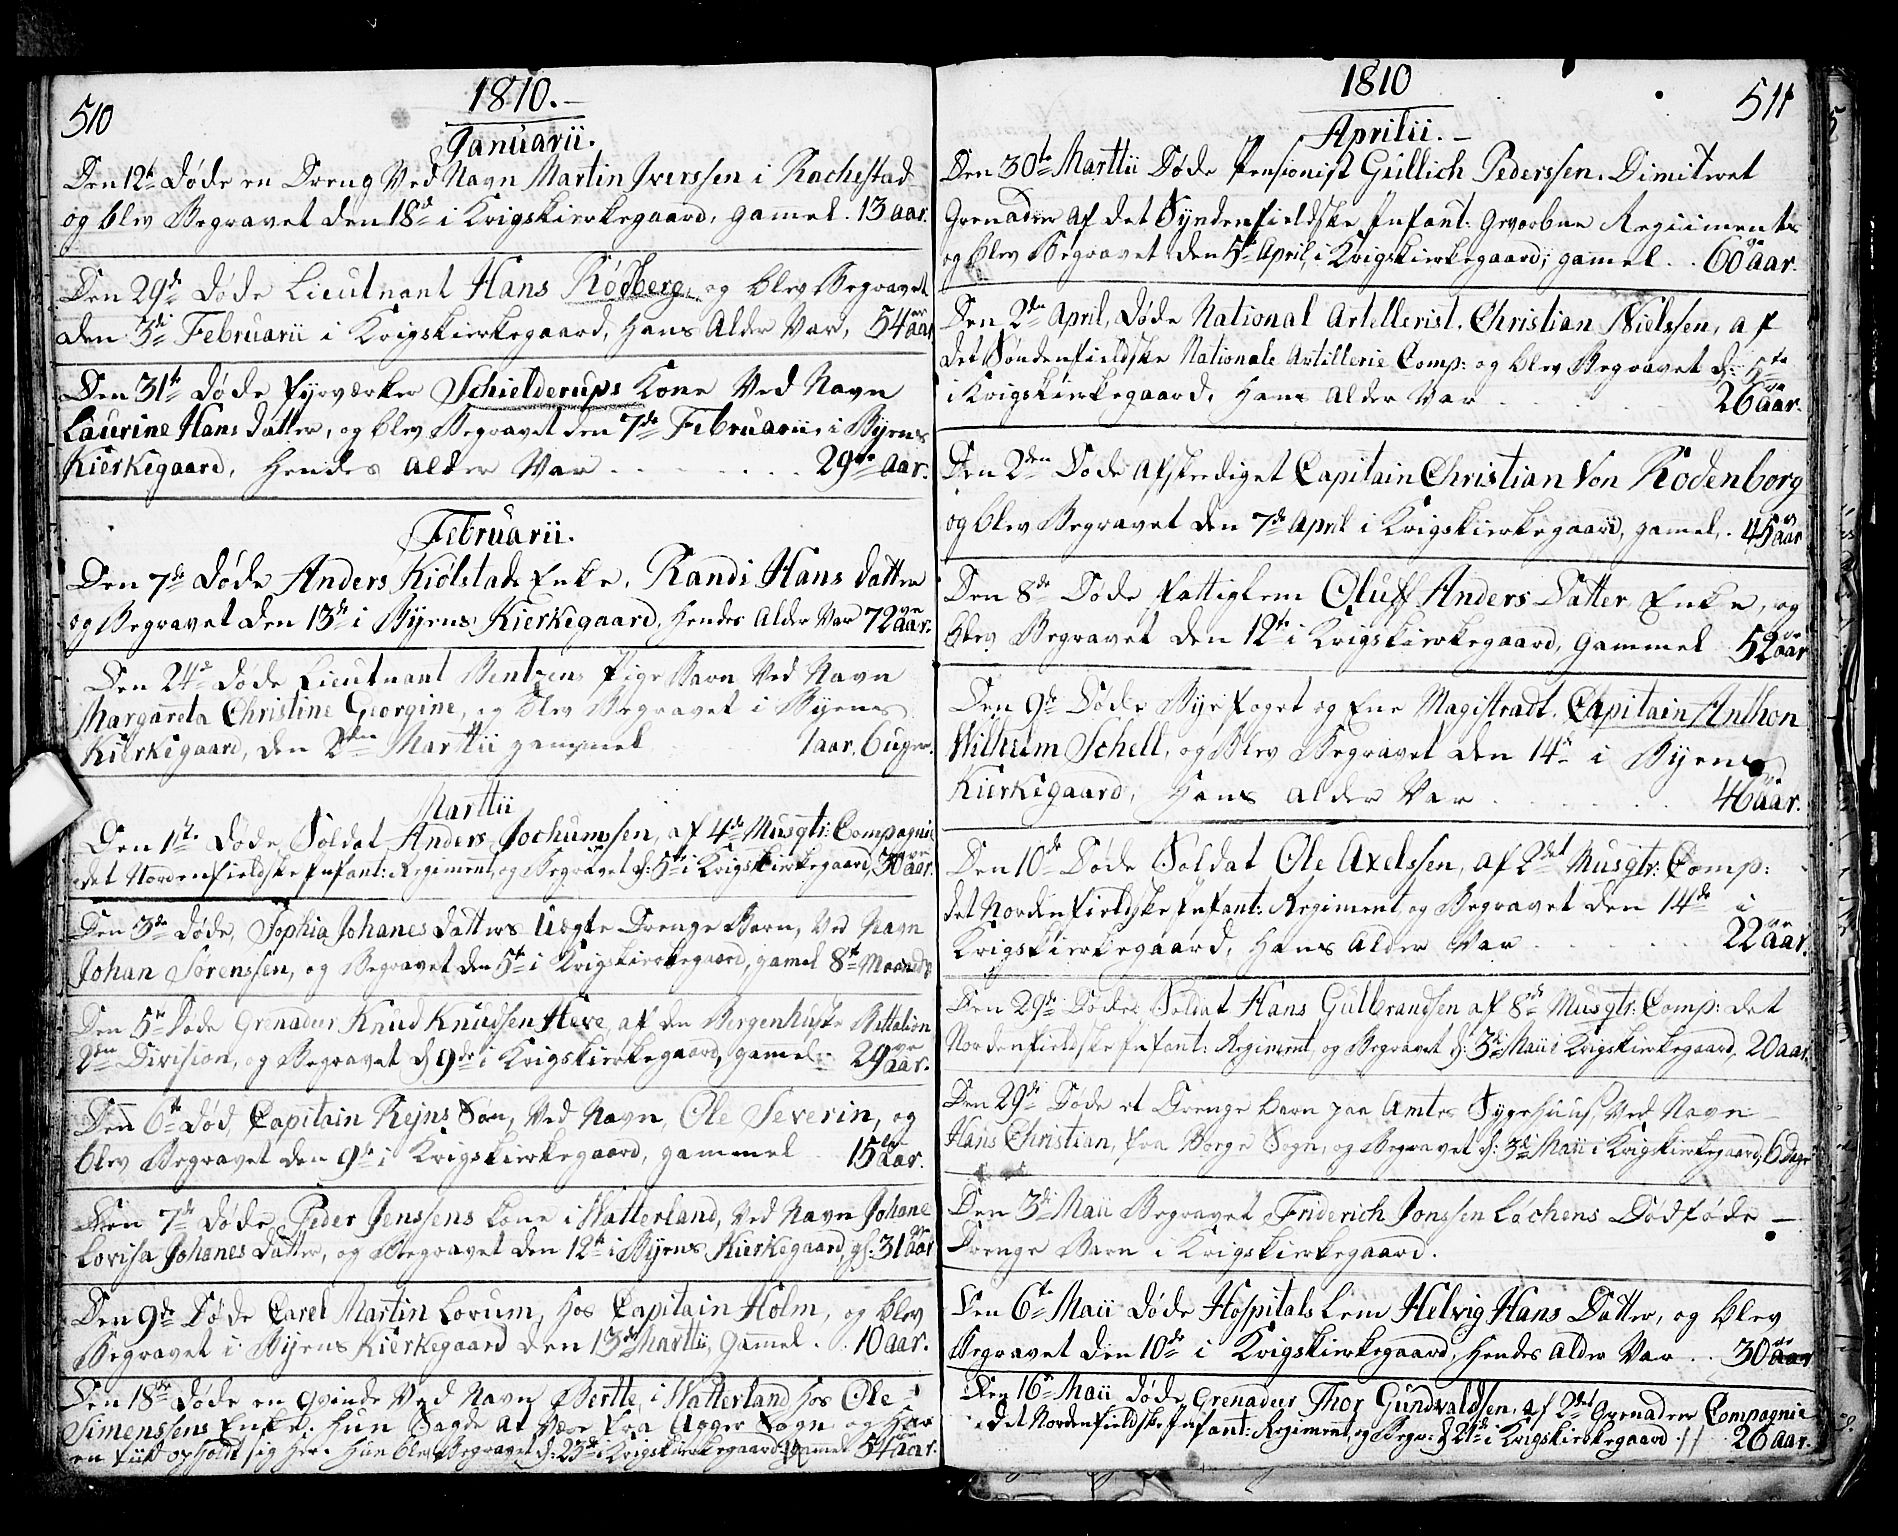 510
1810.—
Januarii.
Den 12te Døde en Dreng Ved Navn Martin Iverssen i Rachestad
og blev Begravet den 18de i Krigskierkegaard, gammel. 13 aar.
Den 29de Døde Lieutnant Hans Rödberg, og blev Begravet
den 3die Februarii i Krigskierkegaard, Hans Alder Var, 54 aar
Den 31te Døde Fyrværker Schielderups Kone Ved Navn
Laurine Hans datter, og blev Begravet den 7de Februarii, i Byens
Kierkegaard, Hendes Alder Var . . . . . . 29ve Aar.
Februarii.
Den 7de Døde Anders Kiölstads Enke, Randi Hans datter
og Begravet den 13de i Byens Kierkegaard, Hendes Alder Var 72 aar.
Den 24de Døde Lieutnant Bentzens Pige Barn Ved Navn
Margareta Christine Georgine, og blev Begravet i Byens
Kierkegaard, den 2den Marttii gammel 1 aar, 6 uger.
Marttii
Den 1ste Døde, Soldat Anders Jochumssen, af 4de Musqtr: Compagnie
det Nordenfieldske Infant: Regiment, og Begravet d: 5te i Krigskierkegaard, 30 aar.
Den 3de Døde, Sophia Johanes Datters Uægte Drenge Barn, Ved Navn
Johan Sørenssen, og Begravet den 5te i Krigskierkegaard, gamel 8te Maaneder
Den 5te Døde Grenadeur Knud Knudsen Heve, af den Bergenhuske Battalion
2den Division, og Begravet d 9de i Krigskierkegaard, gamel.. 29 aar.
Den 6te Død, Capitain Rejns Søn, Ved Navn, Ole Severin, og
blev Begravet den 9de i Krigskierkegaard, gammel 15 aar.
Den 7de Døde Peder Jenssens Kone i Watterland, Ved Navn Johane
Lovisa Johanes datter, og Begravet den 12te i Byens Kierkegaard, gl: 31 aar
Den 9de Døde Carel Martin Lorum, Hos Capitain Holm, og blev
Begravet i Byens Kierkegaard den 13de Marttii, Gammel. . 10 aar.
Den 18de Døde en Qvinde Ved Navn Bertte, i Watterland Hos Ole
Simenssens Enke. Hun Sagde at Være fra Agger Sogn og Har
en tiid opholdt sig Her. Hun blev Begravet d: 23de i Krigskierkegaard, gamel 54 aar.
511
1810
Aprilii.—
Den 30te Marttii Døde Pensionist Gullich Pederssen. Dimiteret
Grenader af det Syndenfieldske Infant: Gevorbne Regiiments
og blev Begravet den 5te April, i Krigskierkegaard, gamel . . 60 aar.
Den 2den April, Døde National Artellerist. Christian Nielssen, af
det Søndenfieldske Nationale Artillerie Comp: og blev Begravet d: 5te
i Krigskierkegaard, Hans Alder Var . . . . . . 26 aar.
Den 2den Døde afskediget Capitain Christian Von Rodenborg
og blev Begravet den 7de April i Krigskierkegaard, gamel, . 45 aar
Den 8de Døde Fattiglem Oluff Anders Datter, Enke, og
blev Begravet den 12te i Krigskierkegaard, Gammel 52 aar
Den 9de Døde Byefoget og Ene Magistradt. Capitain Anthon
Wilhelm Schell, og Blev Begravet den 14de i Byens
Kierkegaard, Hans Alder Var . . . . . . 46 aar.
Den 10de Døde Soldat Ole Axelssen, af 2det Musqtr: Comp:
det Nordenfieldske Infant: Regiment, og Begravet den 14de i
Krigskierkegaard, Hans Alder Var . . . . . . 22 aar.
Den 29de Døde Soldat Hans Gulbrandsen af 8de Musqtr: Comp: det
Nordenfieldske Infant: Regiment, og Begravet d: 3die Maii i Krigskierkegaard, 20 aar.
Den 29de Døde et Drenge barn paa Amtes Sygehuus, Ved Navn
Hans Christian, fra Borge Sogn, og Begravet d: 3die Maii i Krigskierkegaard, 6 dage
Den 3die Maii Begravet Friderich Jonssen Lochens Dødføde —
Drenge Barn i Krigskierkegaard.
Den 6te Maii Døde Hospitals Lem Helvig Hans Datter, og blev
Begravet den 10de i Krigskierkegaard, Hendes Alder Var . . 30 aar
Den 16de Maii Døde, Grenadeur Thor Gundvaldsen, af 2det Grenadeer Compagnie
det Nordenfieldske Infant: Regiment, og Begr: d 21de i Krigskierkegaard .// . 26 aar.